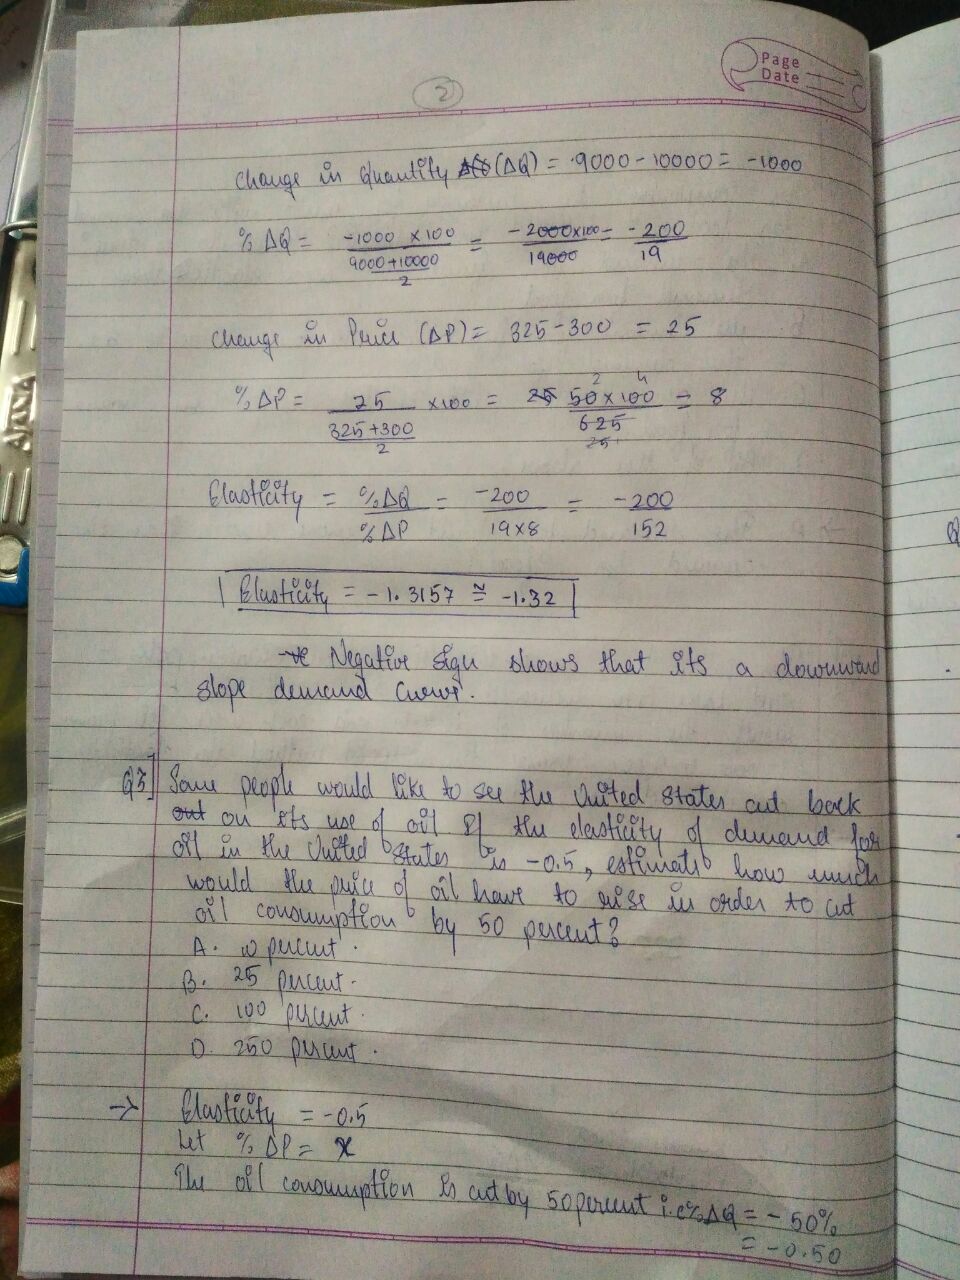 Page
Date
2
Change in Quantity (ΔQ) = 9000 - 10000 = -1000
% ΔQ = -1000 x 100 / (9000+10000 / 2) = -2000x100 / 19000 = -200 / 19
Change in Price (ΔP) = 325 - 300 = 25
% ΔP = 25 / (325+300 / 2) x100 = 50 x 100 / 625 = 8
Elasticity = %ΔQ / %ΔP = -200 / 19x8 = -200 / 152
Elasticity = -1.3157 ≅ -1.32
Negative sign shows that its a downward
slope demand curve.
Q3] Some people would like to see the United States cut back
on its use of oil If the elasticity of demand for
oil in the United States is -0.5, estimate how much
would the price of oil have to rise in order to cut
oil consumption by 50 percent?
A. percent.
B. 25 percent.
C. 100 percent.
D. 250 percent.
→ Elasticity = -0.5
Let % ΔP = x
The oil consumption is cut by 50 percent i.e % ΔQ = - 50%
= -0.50